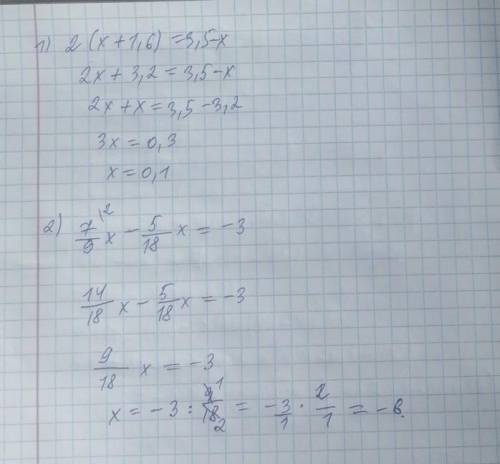 1) 2 (x + 1,6) = 3,5 - x
2x + 3,2 = 3,5 - x
2x + x = 3,5 - 3,2
3x = 0,3
x = 0,1
2) 7/9 \2 x - 5/18 x = -3
14/18 x - 5/18 x = -3
9/18 x = -3
x = -3 : 9 1/18 2 = -3/1 · 2/1 = -6.